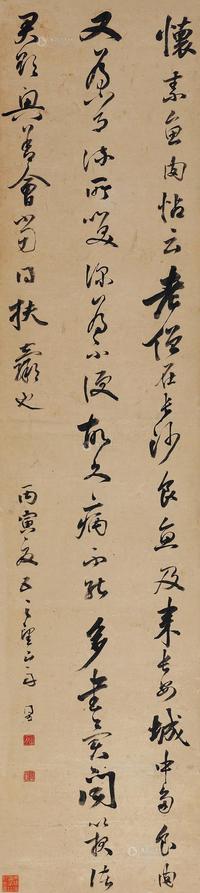 懷素魚肉帖云老僧在長沙食魚及來長安城中多食肉
又為常流所笑深為不便故久病不能多書實
君欲興善會當得扶羸也
丙寅夏五之望